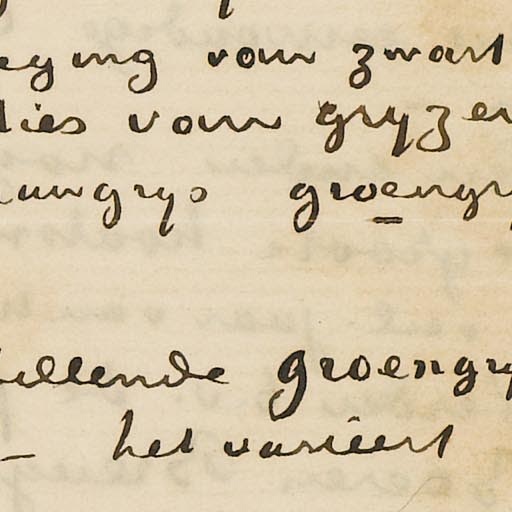 eging van zwart
lies van gryzen
aungrys groengry
llende groengry
— het varieert